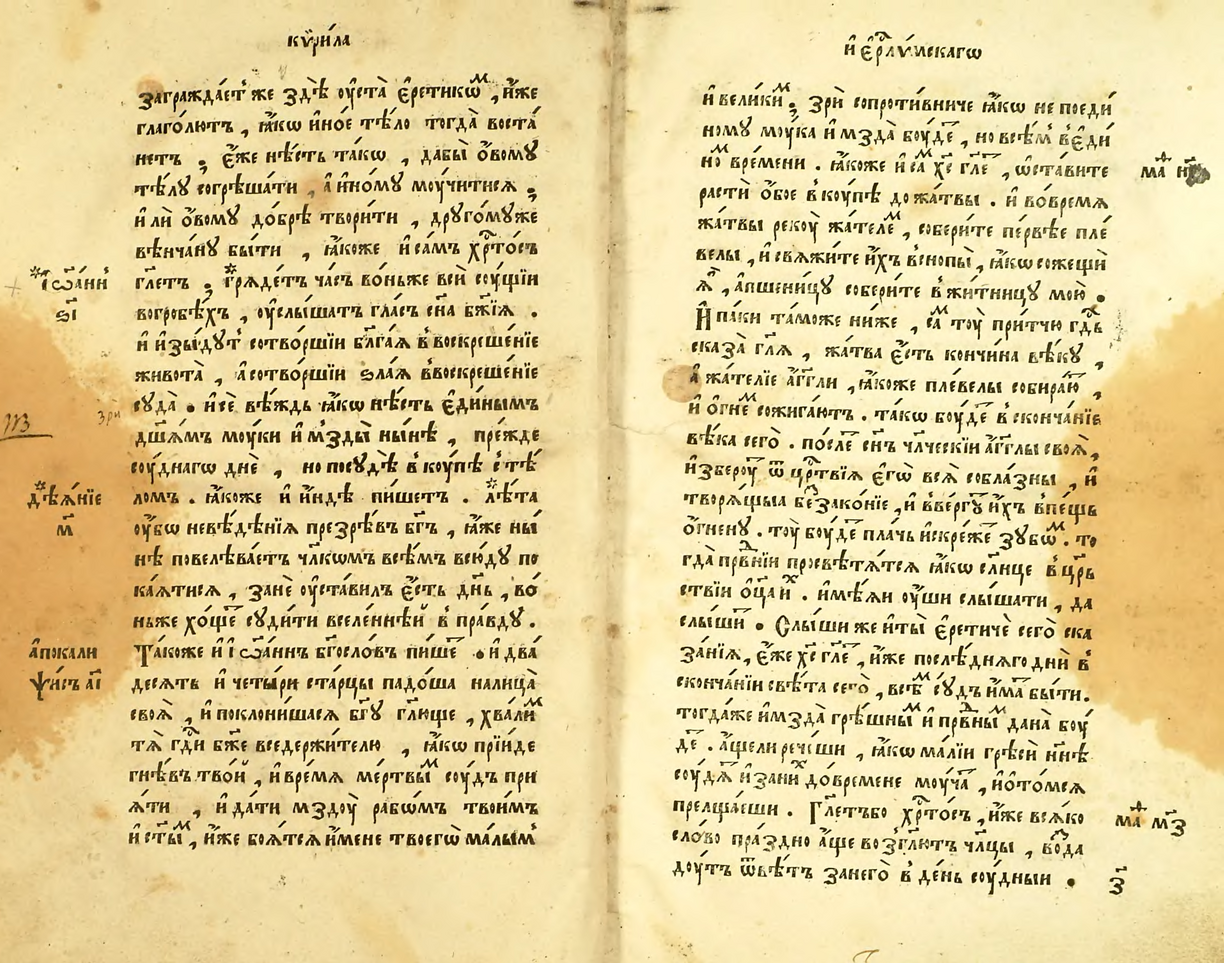 кѷри́ла
заграждає́т же здѣ̀ оу҆ста̀ є҆ретикѡ́м , и҆́же
глаго́лютъ , ꙗ҆́кѡ и҆но́е тѣ́ло тогда̀ воста́
нетъ ; є҆́же нѣ́сть та́кѡ , дабы̀ о҆́вомꙋ
тѣ́лꙋ согрѣша́ти , а҆ и҆но́мꙋ моу́читисѧ ;
и҆ лѝ о҆́вомꙋ до́брѣ твори́ти , дрꙋго́мꙋже
вѣнча́нꙋ бы́ти , ꙗ҆́коже и҆ са́мъ хр҇то́съ
гл҃етъ . * грѧде́тъ ча́съ во́ньже всѝ соу́щїи
вогробѣ́хъ , оу҆слы́шатъ гла́съ сн҃а бж҃їѧ .
и҆ и҆зы́дꙋт сотво́ршїи бл҃га́ѧ в воскреше́нїе
живота̀ , а҆сотво́ршїи ѕла́ѧ ввоскреше́нїе
сꙋда̀ . и҆сѐ вѣ́ждь ꙗ҆́кѡ нѣ́сть є҆ди́нымъ
дш҃а́мъ моу́ки и҆ мзды̀ ны́нѣ , пре́жде
соу́днагѡ днѐ , но посꙋдѣ̀ в коу́пѣ с тѣ́
ломъ . ꙗ҆́коже и҆ и҆́ндѣ пи́шетъ . * лѣ́та
оу҆́бѡ невѣ́дѣнїѧ презрѣ́въ бг҃ъ , ꙗ҆́же ны́
нѣ повелѣва́етъ чл҃кѡмъ всѣ́мъ всю́дꙋ по
ка́ѧтисѧ , занѐ оу҆ста́вилъ є҆́сть дн҃ь , во́
ньже хо́щеⷮ сꙋди́ти вселе́ннѣй в пра́вдꙋ .
Та́коже и҆ і҆ѡа́ннъ бг҃осло́въ пи́шеⷮ . и҆ два́
десѧть и҆ четы́ри ста́рцы падо́ша налица̀
своѧ̀ , и҆ поклони́шасѧ бг҃ꙋ гл҃юще , хва́лиⷨ
тѧ̀ гд҇и бж҃е вседержи́телю , ꙗ҆́кѡ прїи́де
гнѣ́въ тво́й , и҆ вре́мѧ ме́ртвыⷨ соу́дъ при
ѧ́ти , и҆ да́ти мздоу̀ рабѡ́мъ твои́мъ
и҆ ст҃ы́ⷨ , и҆́же боѧ́тсѧ и҆́мене твоегѡ̀ ма́лымъ
* і҆ѡа́нн
ѕ҃і
* дѣѧ́нїе
м҃
а҆покали
ѱисъ а҃і
зри
и҆ є҆рⷭ҇лѵ́мскагѡ
и҆ вели́киⷨ ; зрѝ сопроти́вниче ꙗ҆́кѡ не поеди́
номꙋ моу́ка и҆ мзда̀ боу́деⷮ , но всѣ́м в є҆ди́
ноⷨ вре́мени . ꙗ҆́коже и҆ саⷨ хс҃ гл҃еⷮ , ѡ҆ста́вите
растѝ о҆бо́е в коу́пѣ до жа́твы . и҆ во́времѧ
жа́твы рекоу̀ жа́телеⷨ , собери́те пе́рвѣе пле́
велы , и҆ свѧжи́те и҆́хъ в снопы̀ , ꙗ҆́кѡ сожещѝ
ѧ҆̀ , а҆пшени́цꙋ собери́те в жи́тницꙋ мою̀ .
И҆ па́ки та́може ни́же , са́ⷨ тоу̀ при́тчю гд҇ь
сказа̀ гл҃ѧ , жа́тва є҆́сть кончи́на вѣ́кꙋ ,
а҆ жа́телїе а҆́гг҃ли , ꙗ҆́коже пле́велы собира́юⷮ ,
и҆ о҆гне́ⷨ сожига́ютъ . та́кѡ боу́деⷮ в сконча́нїе
вѣ́ка сего̀ . по́слеⷮ сн҃ъ чл҃ческїи а҆́гг҃лы своѧ̀ ,
и҆збероу́ⷮ ѿ црⷭ҇твїѧ є҆гѡ̀ всѧ̀ собла́зны , и҆
творѧ́щыѧ беззако́нїе , и҆ вве́ргꙋⷮ и҆́хъ впе́щь
о҆́гненꙋ . тоу̀ боу́деⷮ пла́чь и҆ скре́жеⷮ зꙋбѡ́ⷨ . то
гда̀ прⷡ҇нїи просвѣтѧ́тсѧ ꙗ҆́кѡ сл҃нце в црⷭ҇
ствїи о҆ц҃а и҆ⷯ . и҆мѣ́ѧи оу҆́ши слы́шати , да
слы́шиⷮ . Слы́ши же и҆ты̀ є҆рети́че сего̀ ска
за́нїѧ , є҆́же хс҃ гл҃еⷮ , и҆́же послѣ́днѧго днѝ в
сконча́нїи свѣ́та сего̀ , всѣ́ⷨ сꙋ́дъ и҆́маⷮ бы́ти .
тогда́же и҆ мзда̀ грѣ́шныⷨ и҆ прⷡ҇ныⷨ дана̀ боу́
деⷮ . а҆́щели рече́ши , ꙗ҆́кѡ ма́лїи грѣсѝ нн҃ѣ
соу́дѧⷮ и҆ зани́ⷯ до́времене моу́чаⷮ , и҆ ѡ҆то́мсѧ
прелща́еши . Гл҃етъбо хр҇то́съ , и҆́же всѧ́ко
сло́во пра́здно а҆́ще возгл҃ютъ чл҃цы , во́зда
доу́тъ ѿвѣ́тъ занего̀ в де́нь соу́дныи .
маⷴ҇
маⷴ҇ м҃з
з҃